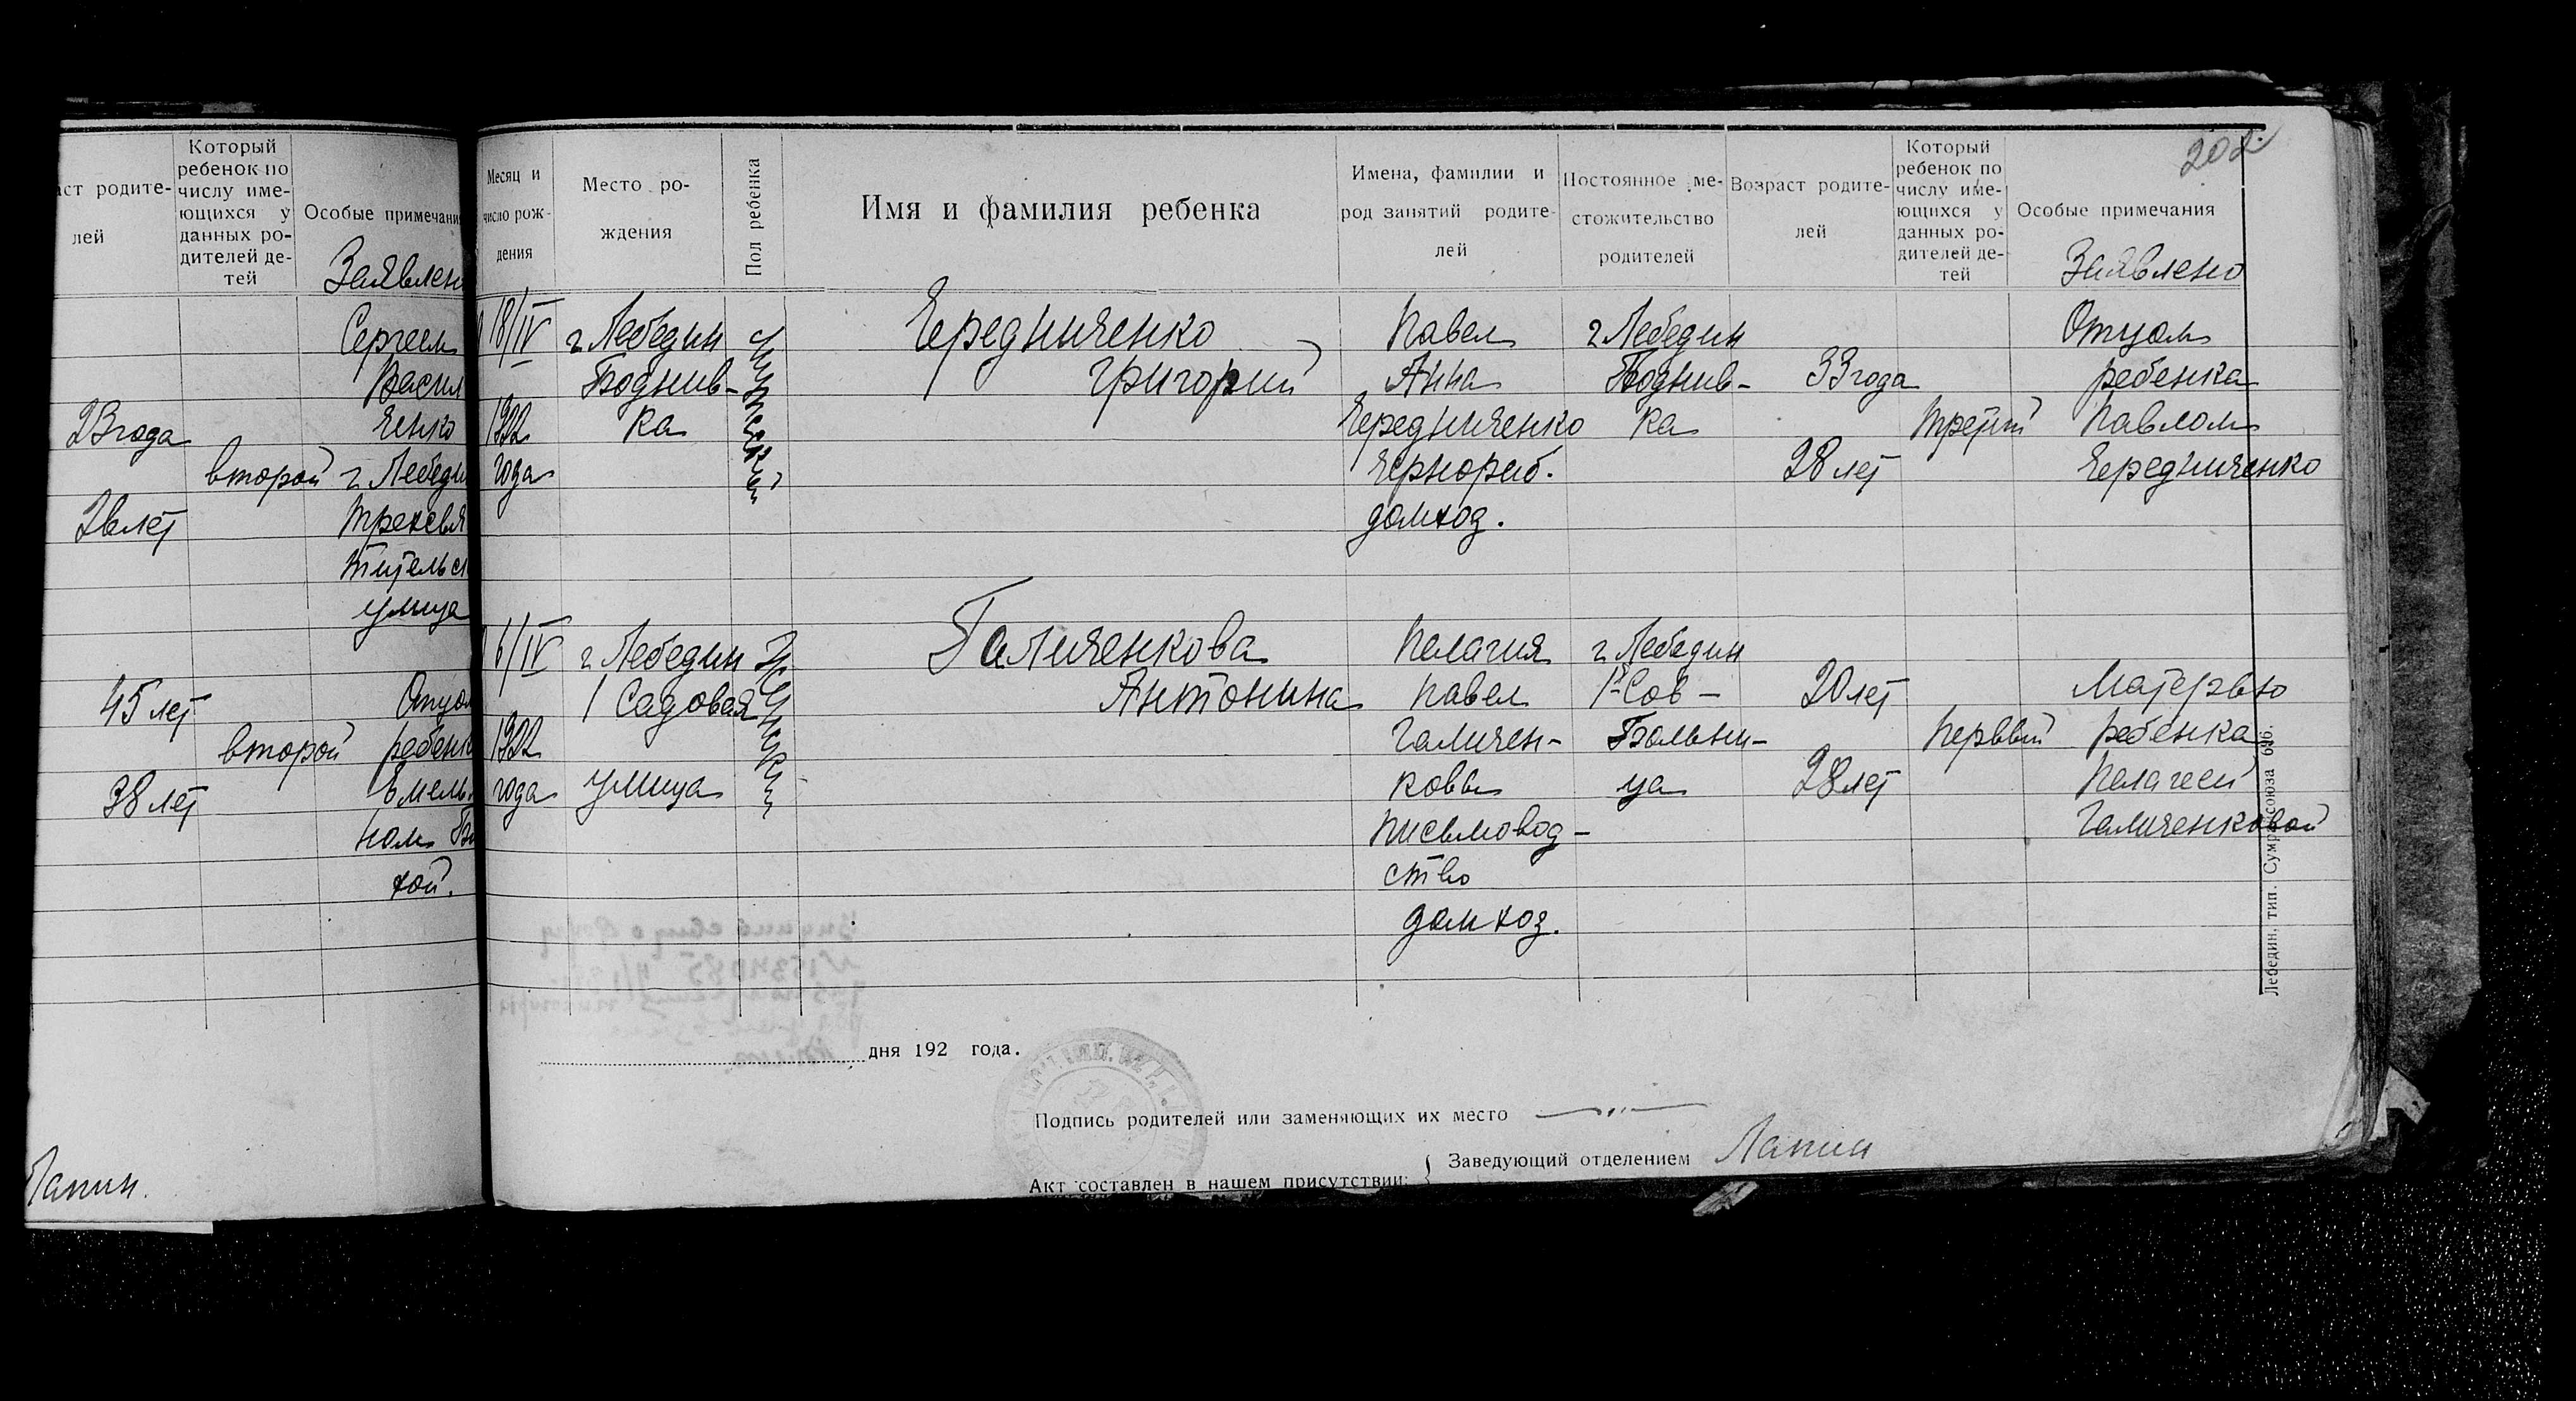 аст родите-
лей
Который
ребенок по
числу име-
ющихся у
данных ро-
дителей де-
тей
Особые примечани
Заявлен
Сергеем
Васил
23 года
ченко
второй
г Лебеди
26 лет
Трехсвя
тительск
улица
45 лет
Отцом
второй
ребенк
38 лет
Емель
ном
хой.
Лапин.
202
Месяц и
число рож-
дения
Место ро-
ждения
Пол ребенка
Имя и фамилия ребенка
Имена, фамилии и
род занятий родите-
лей
Постоянное ме-
стожительство
родителей
Возраст родите-
лей
Который
ребенок по
числу име-
ющихся у
данных ро-
дителей де-
тей
Особые примечания
Заявлено
18/IV
1922
года
г Лебедин
Боднив-
ка
мужеский
Чередниченко
Григорий
Павел
Анна
Чередниченко
чернораб.
домхоз.
г Лебедин
Боднив-
ка
33 года
28 лет
третий
Отцом
ребенка
Павлом
Чередниченко
6/IV
1922
года
г Лебедин
1 Садовая
улица
женский
Галиченкова
Антонина
Пелагия
Павел
Галичен-
ковы
письмовод-
ство
домхоз.
г Лебедин
1я Сов-
Больни-
ца
20 лет
28 лет
первый
Матерью
ребенка
Пелагеей
Галиченковой
Лебедин. тип. Сумрайсоюза 696.
дня 192 года.
Подпись родителей или заменяющих их место
Заведующий отделением Лапин
Акт составлен в нашем присутствии: